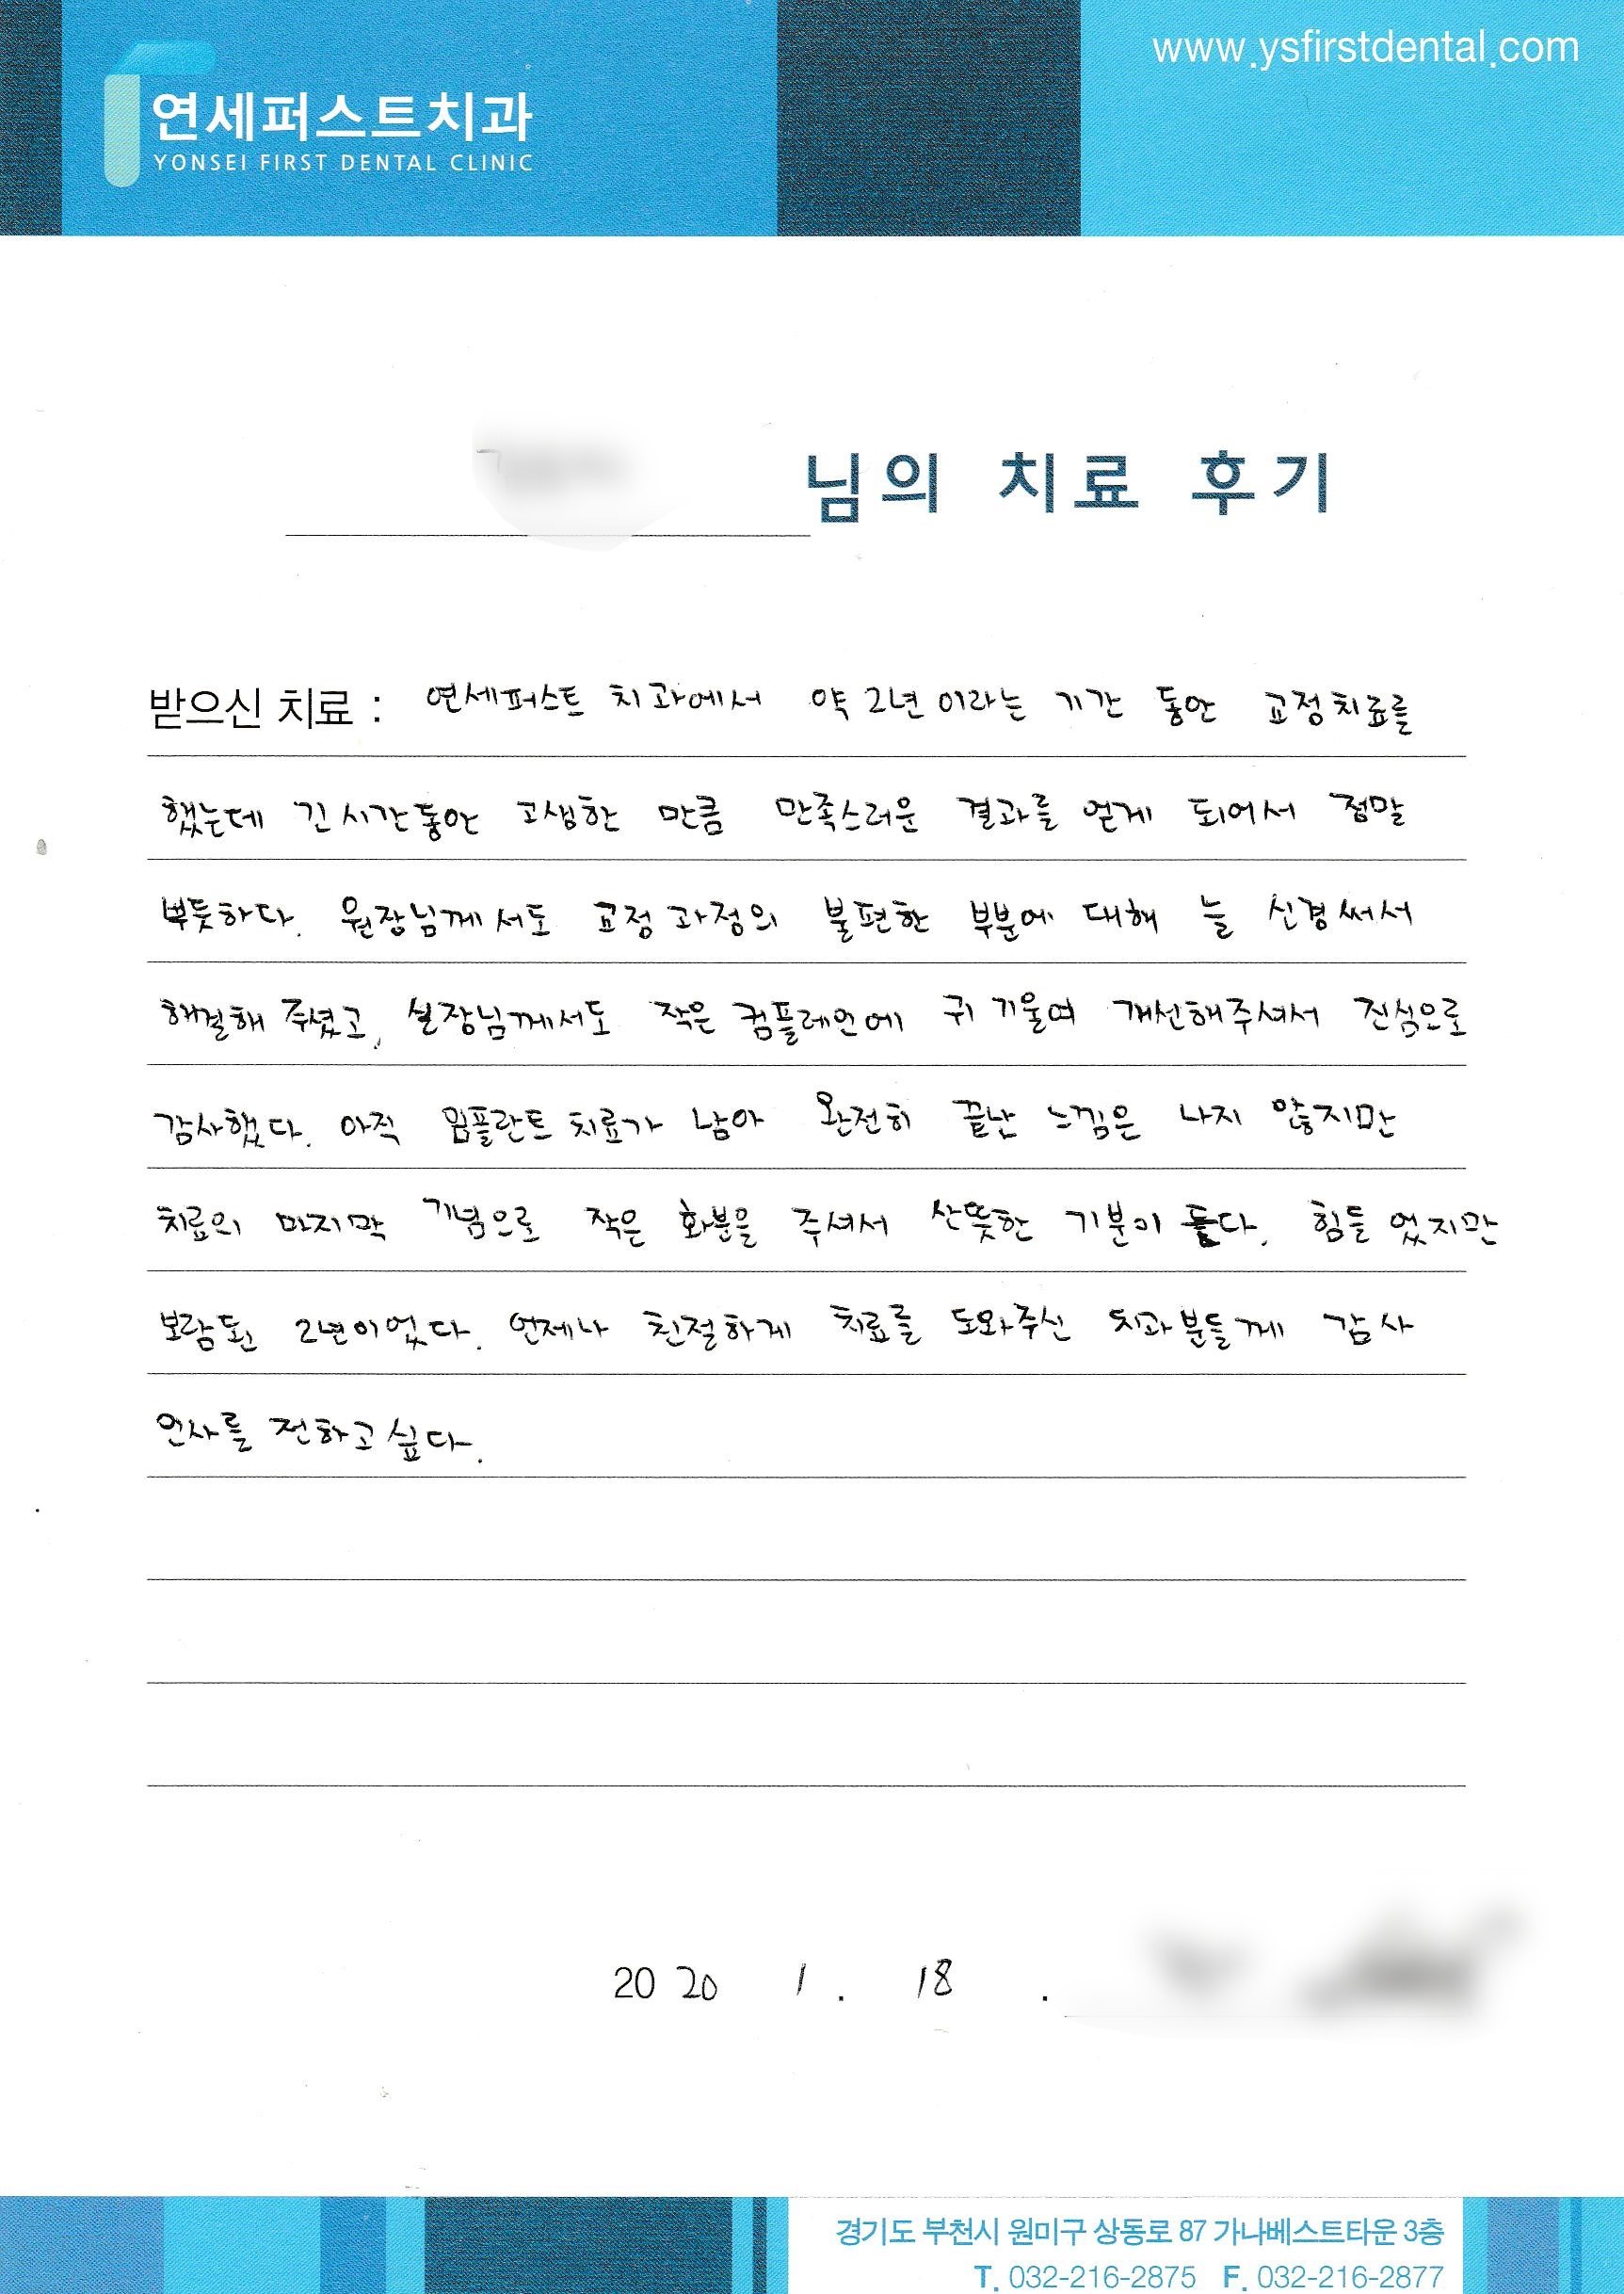 www.ysfirstdental.com
연세퍼스트치과
YONSEI FIRST DENTAL CLINIC
님의 치료 후기
받으신 치료 : 연세퍼스트 치과에서 약 2년이라는 기간 동안 교정치료를
했는데 긴 시간동안 고생한 만큼 만족스러운 결과를 얻게 되어서 정말
뿌듯하다. 원장님께서도 교정 과정의 불편한 부분에 대해 늘 신경써서
해결해 주셨고, 실장님께서도 작은 컴플레인에 귀 기울여 개선해주셔서 진심으로
감사했다. 아직 임플란트 치료가 남아 완전히 끝난 느낌은 나지 않지만
치료의 마지막 기념으로 작은 화분을 주셔서 산뜻한 기분이 든다. 힘들었지만
보람된 2년이었다. 언제나 친절하게 치료를 도와주신 치과분들께 감사
인사를 전하고 싶다.
2020 1 . 18 .
경기도 부천시 원미구 상동로 87 가나베스트타운 3층
T. 032-216-2875 F. 032-216-2877